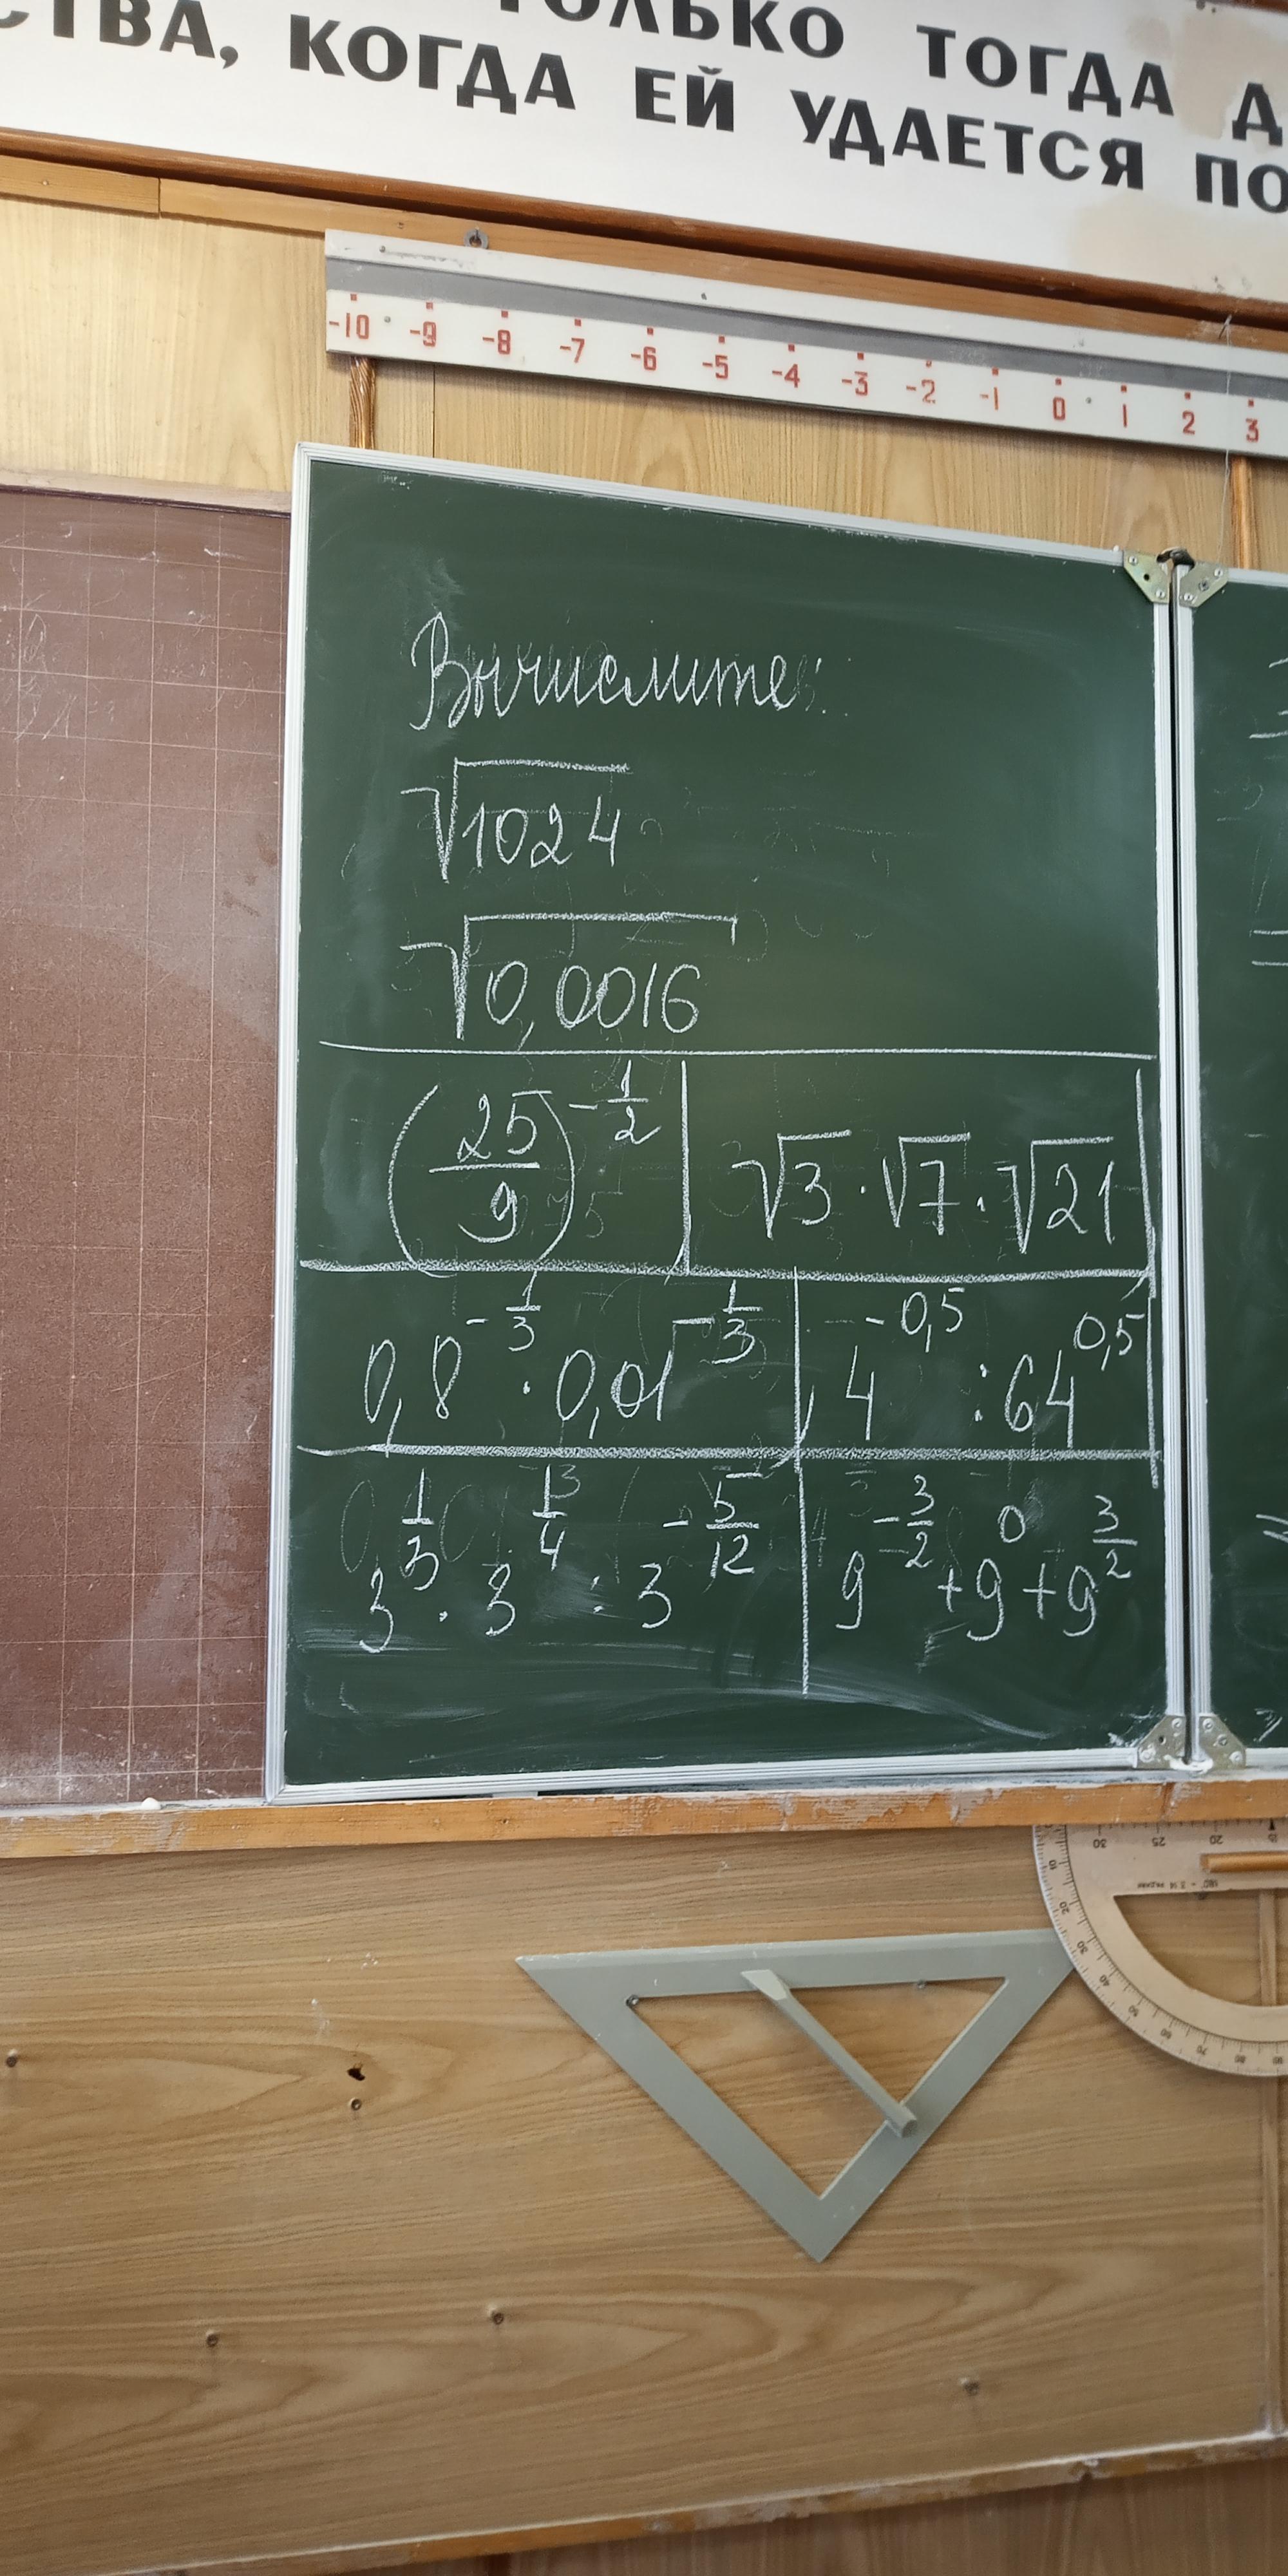 ТОЛЬКО ТОГДА Д
СТВА, КОГДА ЕЙ УДАЕТСЯ ПО
-10 -9 -8 -7 -6 -5 -4 -3 -2 -1 0 1 2 3
Вычислите:
√1024
√0,0016
(25/9)^(-1/2) | √3 · √7 · √21
0,8^(-1/3) · 0,01^(-1/3) | 4^(-0,5) : 64^(0,5)
3^(1/3) · 3^(1/4) : 3^(-5/12) | 9^(-3/2) + 9^0 + 9^(3/2)
30 25 20 15